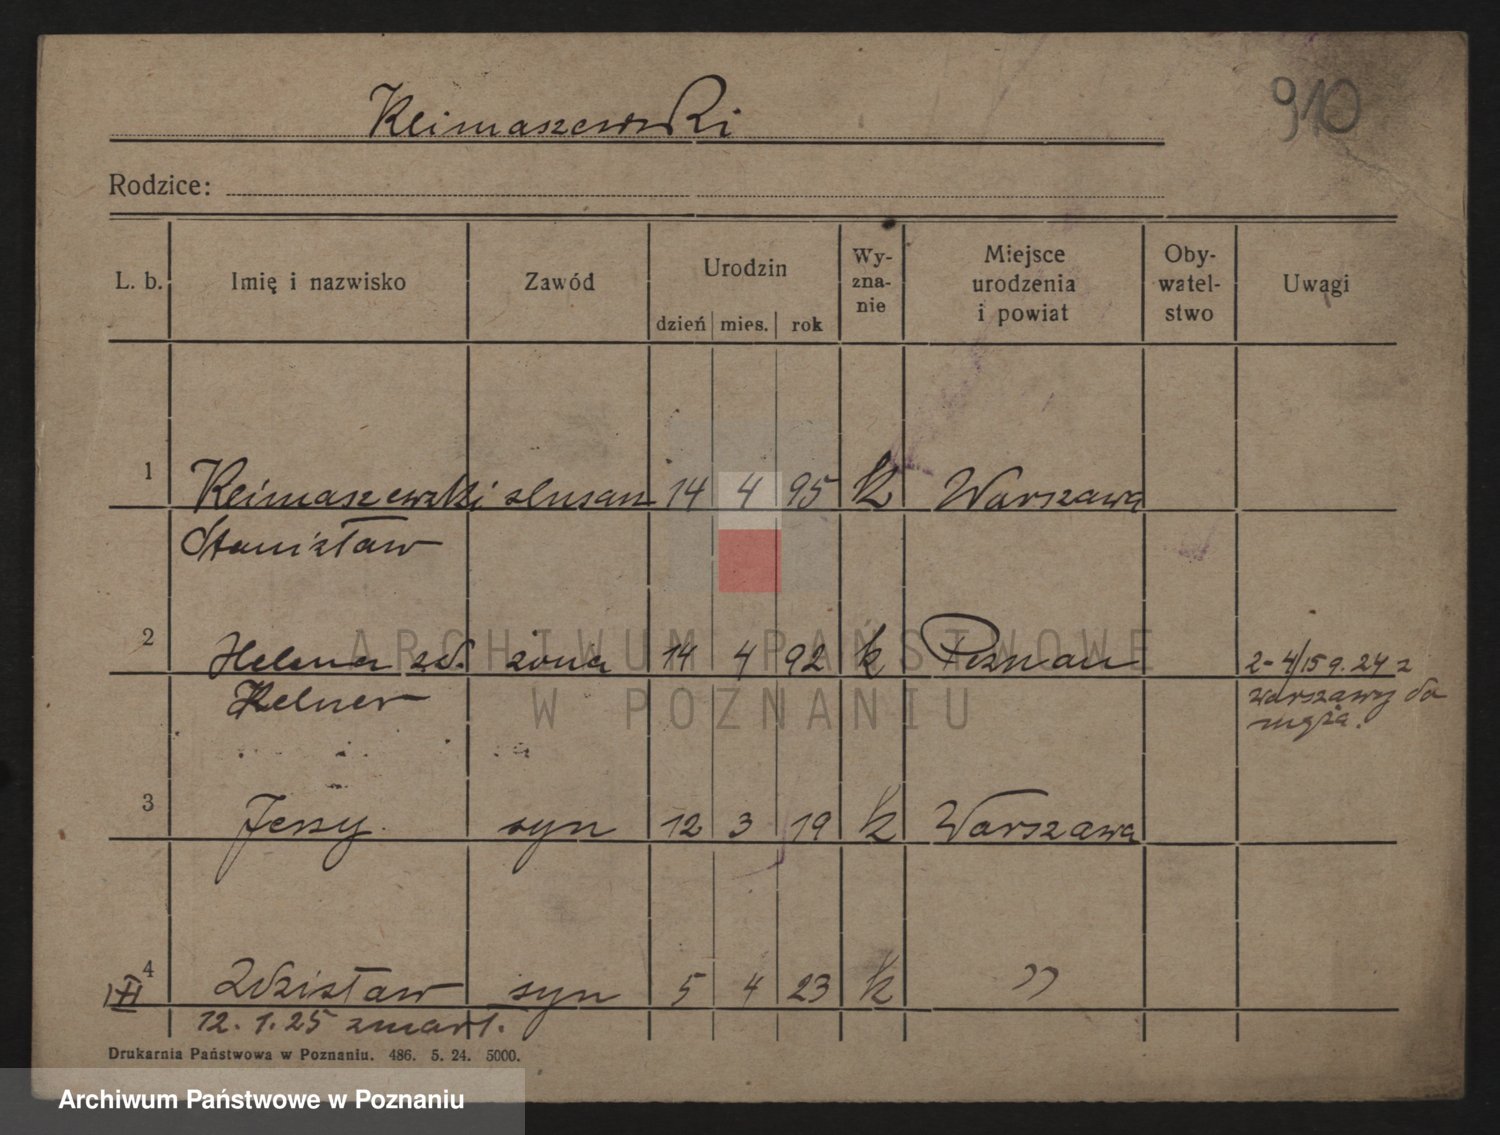 Klimaszewski
910
Rodzice:
L. b. Imię i nazwisko Zawód Urodzin dzień mies. rok Wy-zna-nie Miejsce urodzenia i powiat Oby-watel-stwo Uwagi
1 Klimaszewski 14 4 95 k Warszawa
Stanisław
2 Helena żona 14 4 92 k Poznan 2-4/15 9. 24 z
Kelner warszawy do
męża.
3 Jerzy syn 12 3 19 k Warszawa
4 Zdzisław syn 5 4 23 k "
12. 1. 25 zmarł.
Drukarnia Państwowa w Poznaniu. 486. 5. 24. 5000.
ARCHIWUM PAŃSTWOWE
W POZNANIU
Archiwum Państwowe w Poznaniu